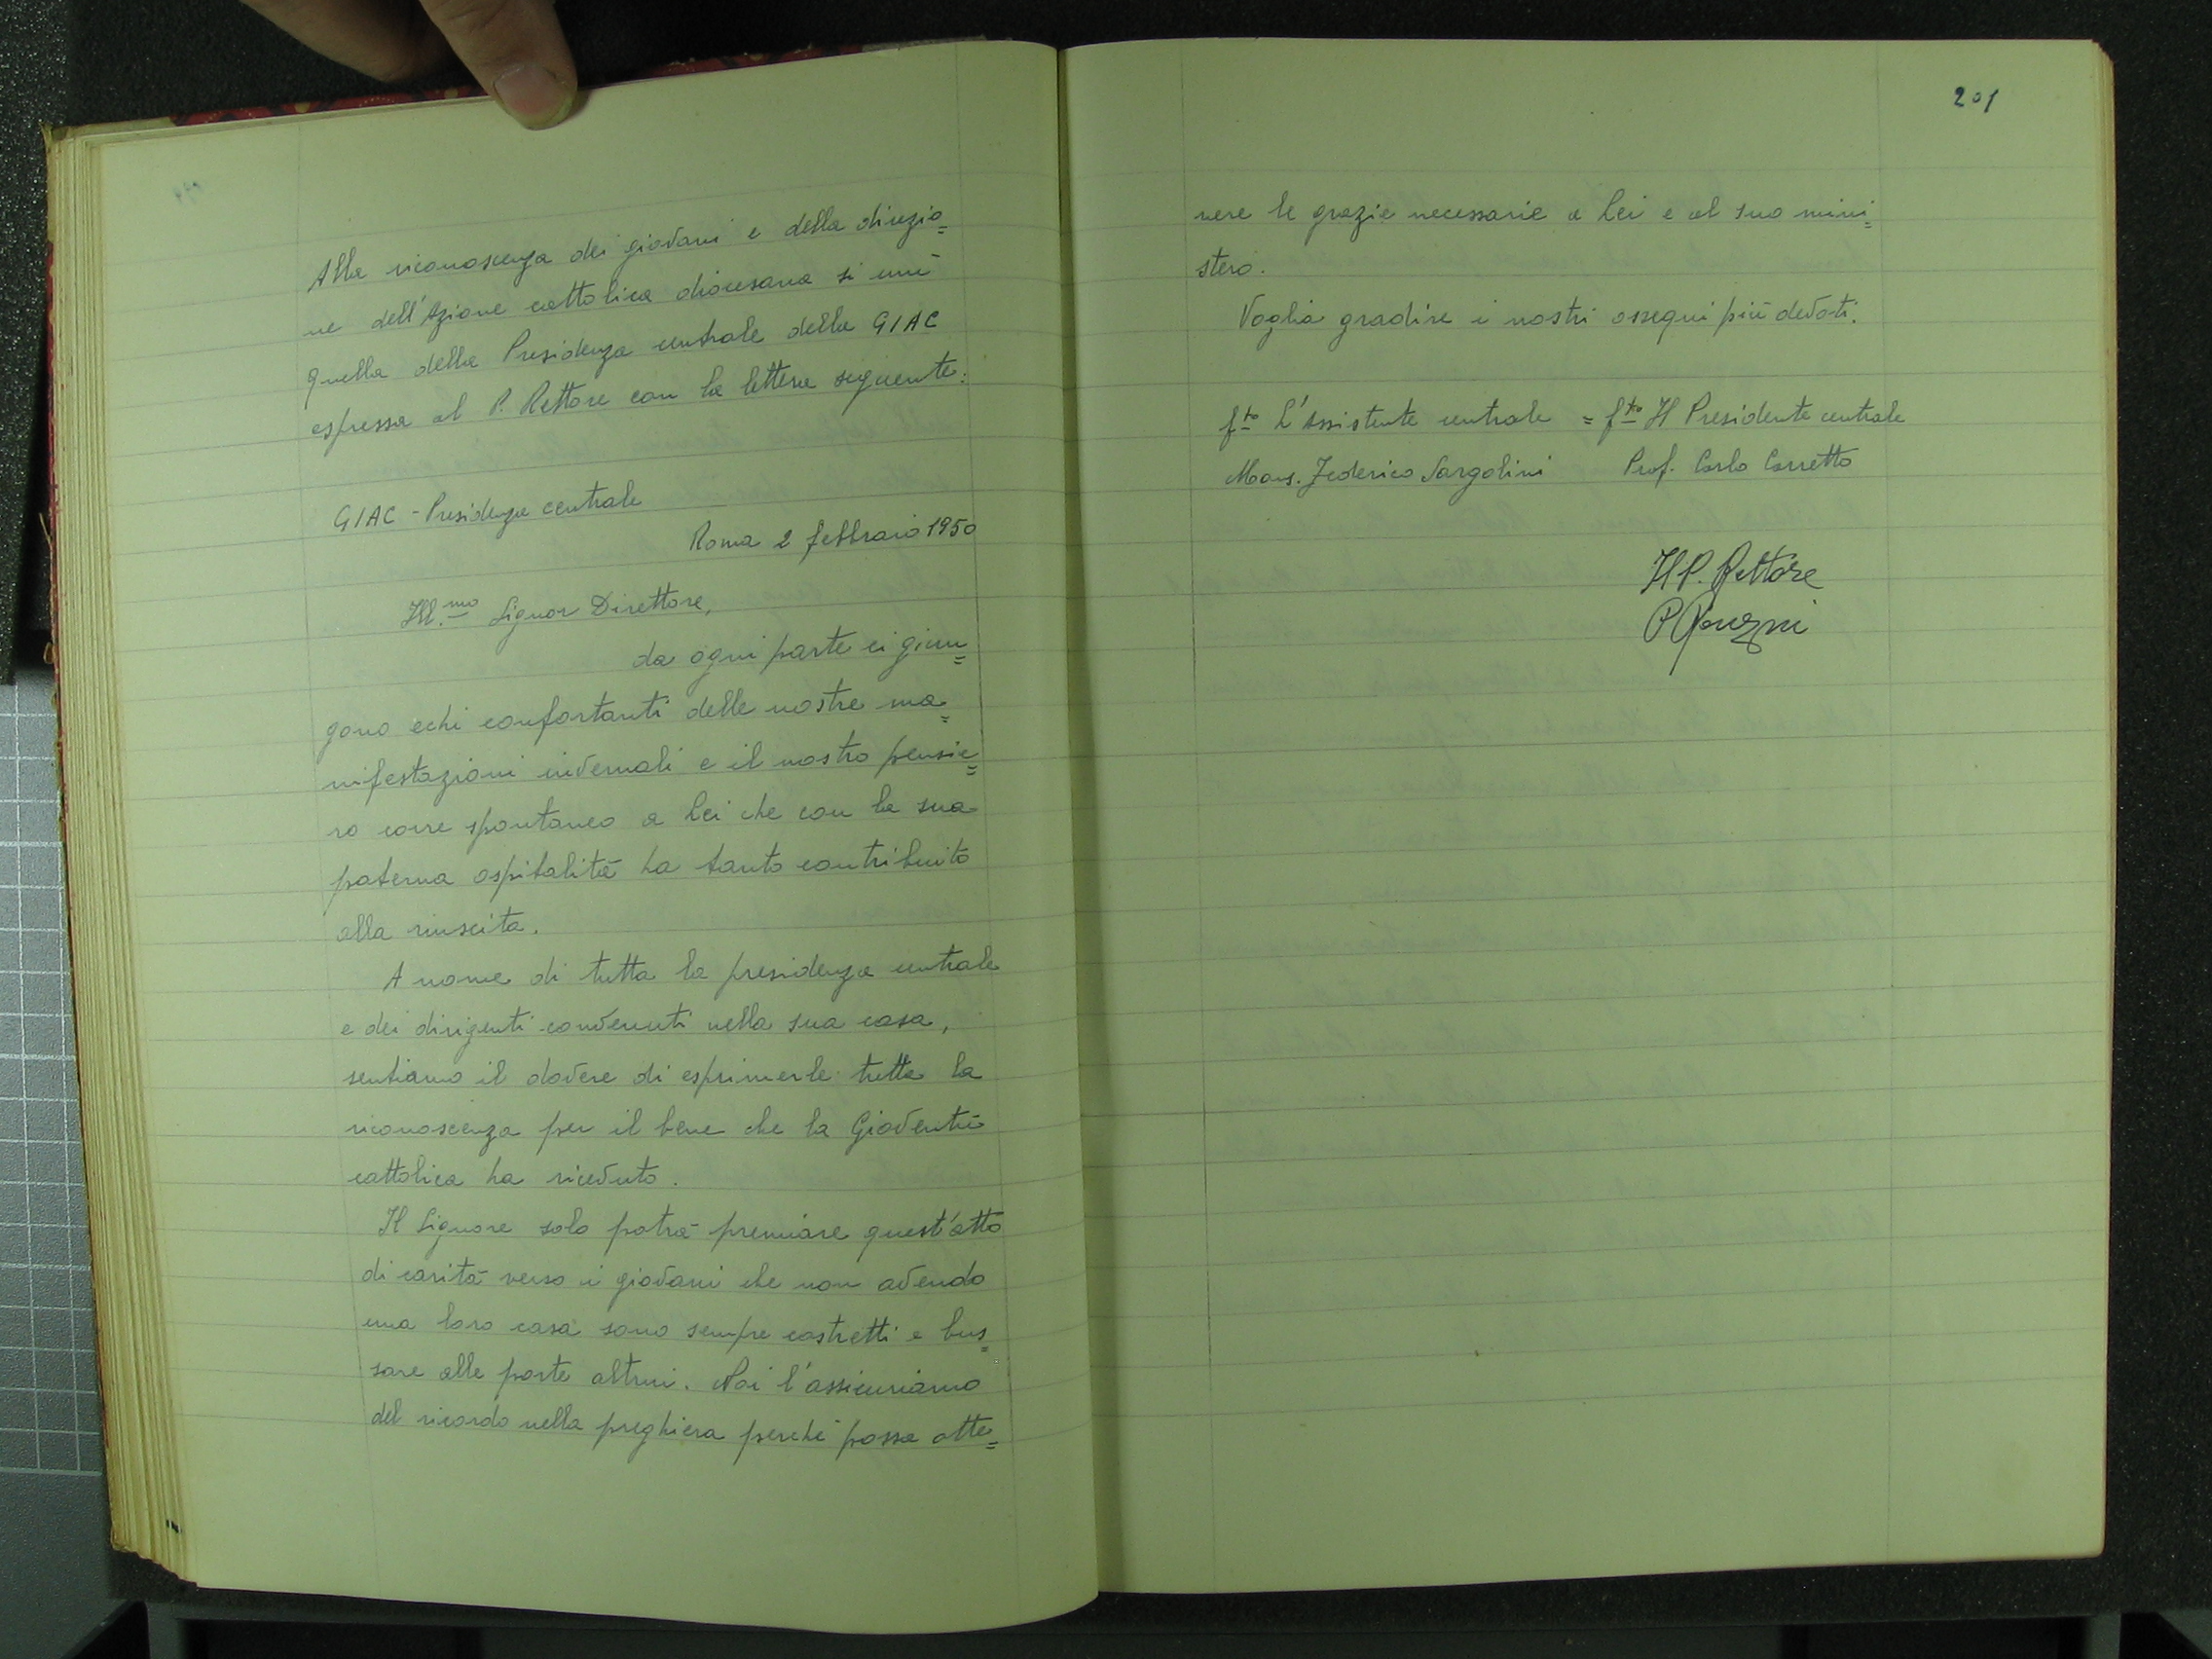 Alla riconoscenza dei giovani e della direzio=
ne dell'Azione cattolica diocesana si unì
quella della Presidenza centrale della GIAC
espressa al P. Rettore con la lettera seguente:
GIAC - Presidenza centrale
Roma 2 febbraio 1950
Ill.mo Signor Direttore,
da ogni parte ci giun=
gono echi confortanti delle nostre ma=
nifestazioni invernali e il nostro pensie=
ro corre spontaneo a Lei che con la sua
paterna ospitalità ha tanto contribuito
alla riuscita.
A nome di tutta la presidenza centrale
e dei dirigenti convenuti nella sua casa,
sentiamo il dovere di esprimerle tutta la
riconoscenza per il bene che la Gioventù
cattolica ha ricevuto.
Il Signore solo potrà premiare quest'atto
di carità verso i giovani che non avendo
una loro casa sono sempre costretti a bus=
sare alle porte altrui. Noi l'assicuriamo
del ricordo nella preghiera perché possa otte=
201
nere le grazie necessarie a Lei e al suo mini=
stero.
Voglia gradire i nostri ossequi più devoti.
f.to L'Assistente centrale = f.to Il Presidente centrale
Mons. Federico Sargolini Prof. Carlo Carretto
Il P. Rettore
P.